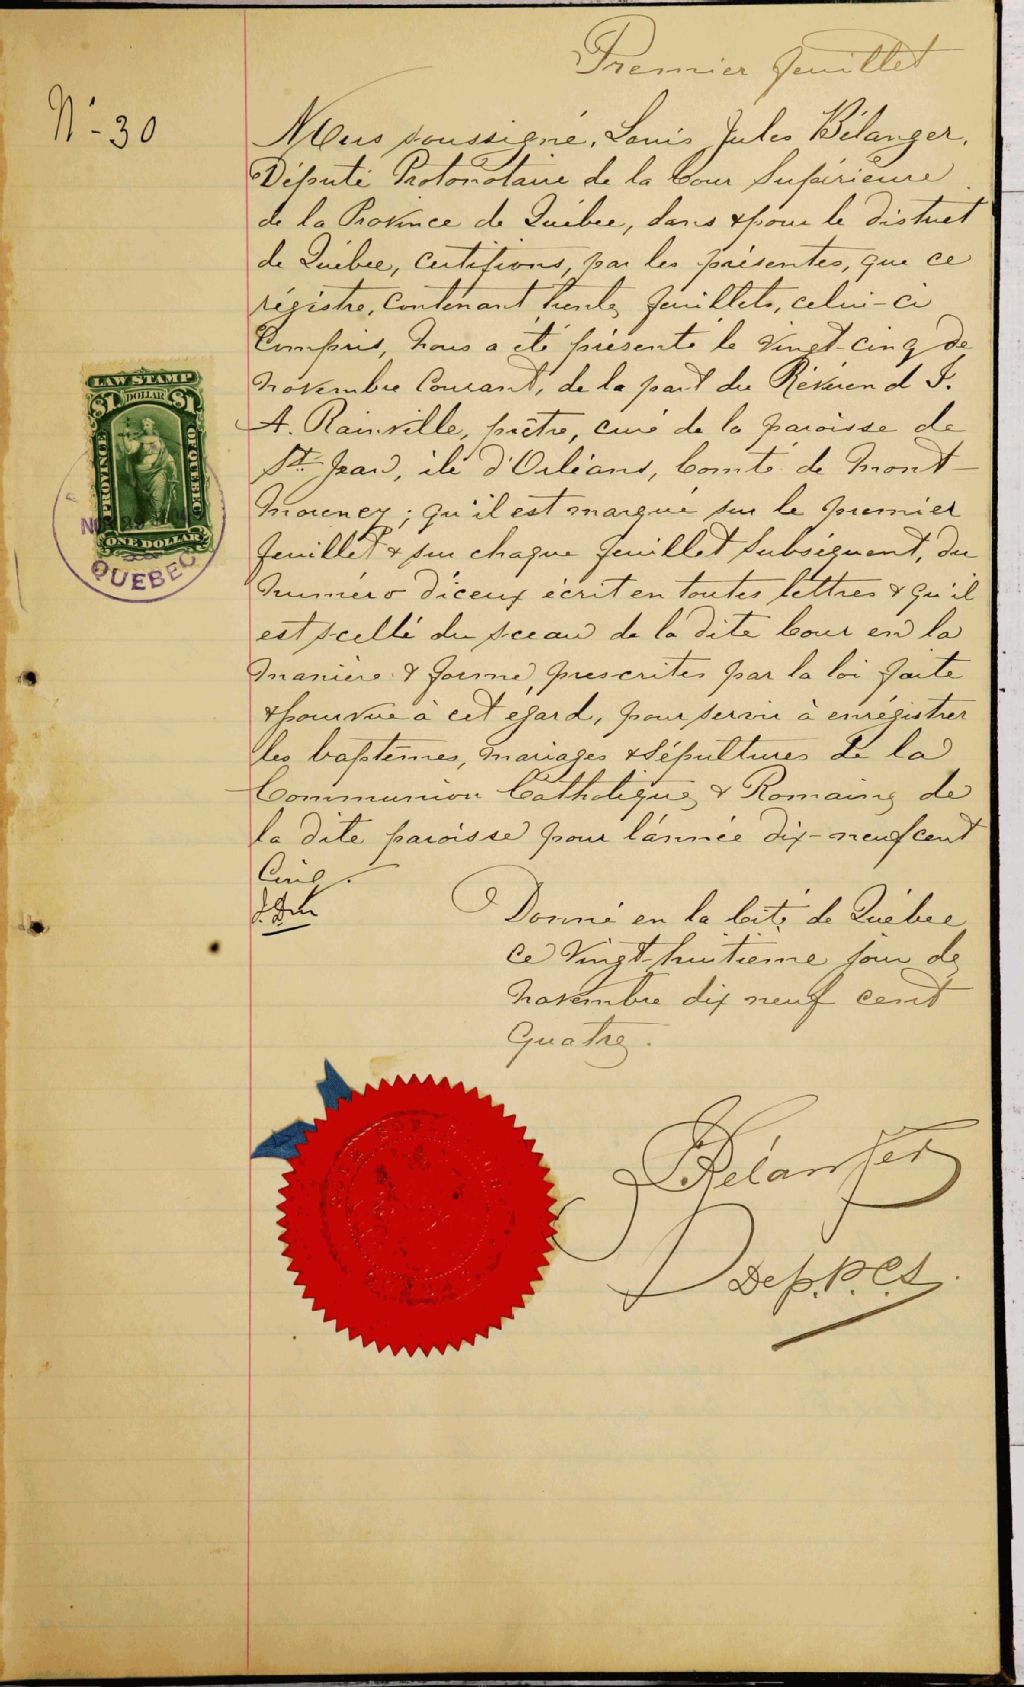 Premier feuillet
No 30
Nous soussigné, Louis Jules Bélanger,
Député Protonotaire de la Cour Supérieure
de la Province de Québec, dans & pour le district
de Québec, certifions, par les présentes, que ce
régistre, contenant trente feuillets, celui-ci
Compris, nous a été présenté le vingt-cinq de
novembre Courant, de la part du Révérend J.
A. Rainville, prêtre, curé de la paroisse de
St Jean, ile d'Orléans, Comté de Mont-
morency; qu'il est marqué sur le premier
feuillet & sur chaque feuillet subséquent, du
numéro d'iceux écrit en toutes lettres & qu'il
est scellé du sceau de la dite Cour en la
manière & forme prescrites par la loi faite
& pourvue à cet égard, pour servir à enrégistrer
les baptêmes, mariages & sépultures de la
Communion Catholique & Romaine de
la dite paroisse pour l'année dix-neuf cent
Cinq.
Donné en la Cité de Québec
ce vingt-huitième jour de
novembre dix neuf cent
quatre.
Bélanger
Dep. P.C.S.
LAW STAMP
$1 DOLLAR $1
PROVINCE OF QUEBEC
ONE DOLLAR
QUEBEC